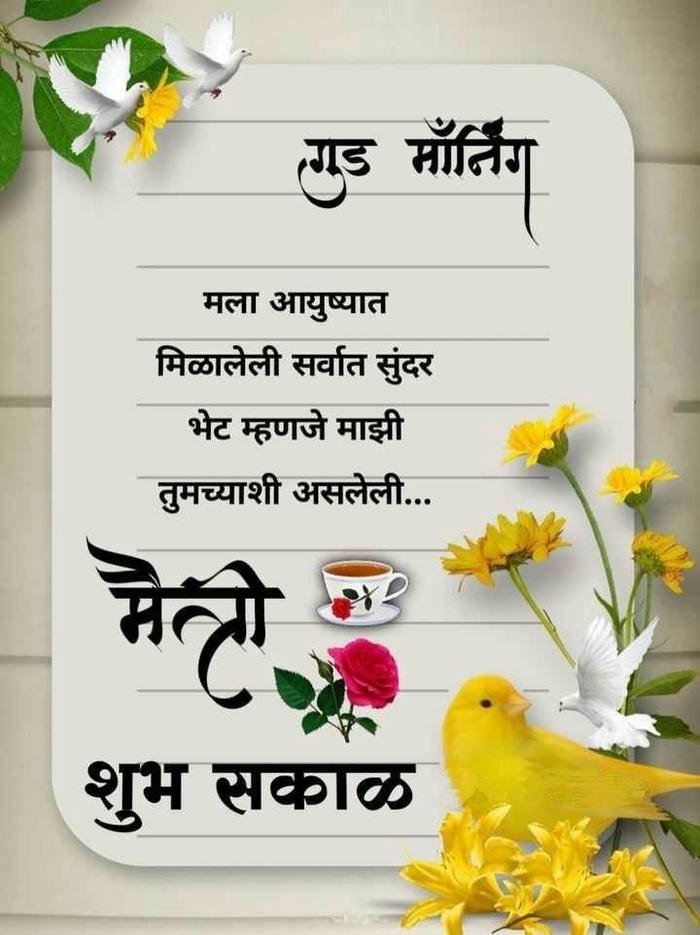 गुड मॉर्निंग
मला आयुष्यात
मिळालेली सर्वात सुंदर
भेट म्हणजे माझी
तुमच्याशी असलेली...
मैत्री
शुभ सकाळ